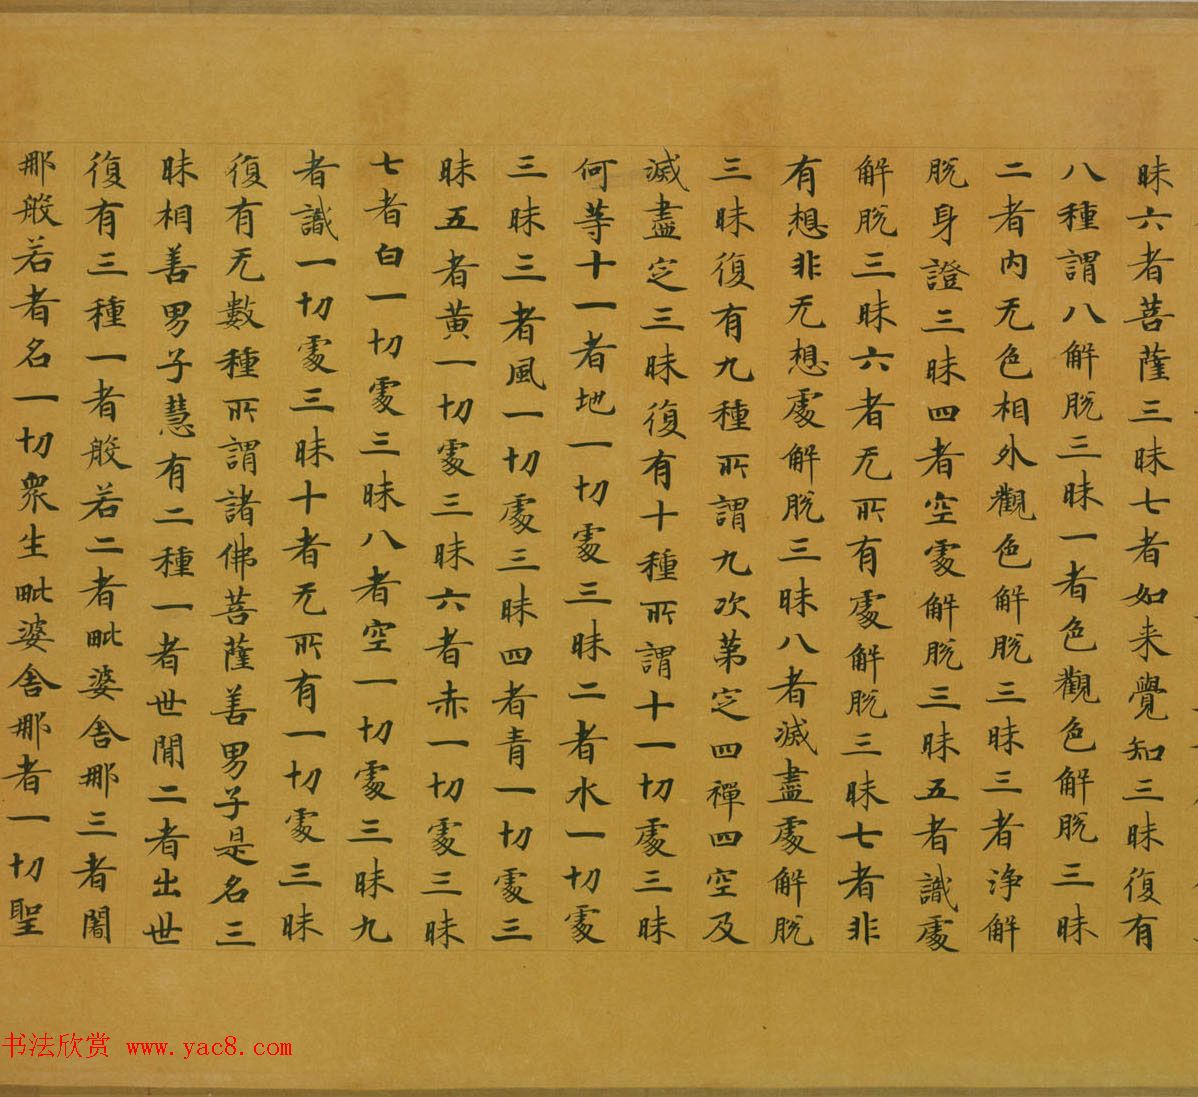 昧六者菩薩三昧七者如来覺知三昧復有
八種謂八解脫三昧一者色觀色解脫三昧
二者内无色相外觀色解脫三昧三者淨解
脫身證三昧四者空處解脫三昧五者識處
解脫三昧六者无所有處解脫三昧七者非
有想非无想處解脫三昧八者滅盡處解脫
三昧復有九種所謂九次第定四禪四空及
滅盡定三昧復有十種所謂十一切處三昧
何等十一者地一切處三昧二者水一切處
三昧三者風一切處三昧四者青一切處三
昧五者黄一切處三昧六者赤一切處三昧
七者白一切處三昧八者空一切處三昧九
者識一切處三昧十者无所有一切處三昧
復有无數種所謂諸佛菩薩善男子是名三
昧相善男子慧有二種一者世間二者出世
復有三種一者般若二者毗婆舍那三者闍
那般若者名一切衆生毗婆舍那者一切聖
书法欣赏 www.yac8.com